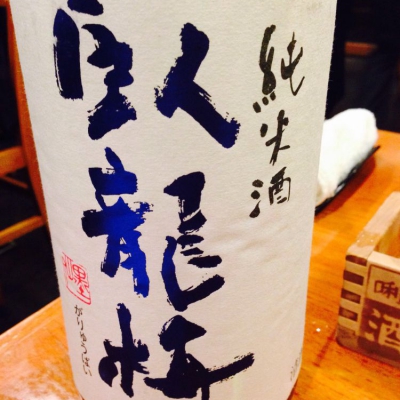 純米酒
臥龍梅
がりゅうばい
酒